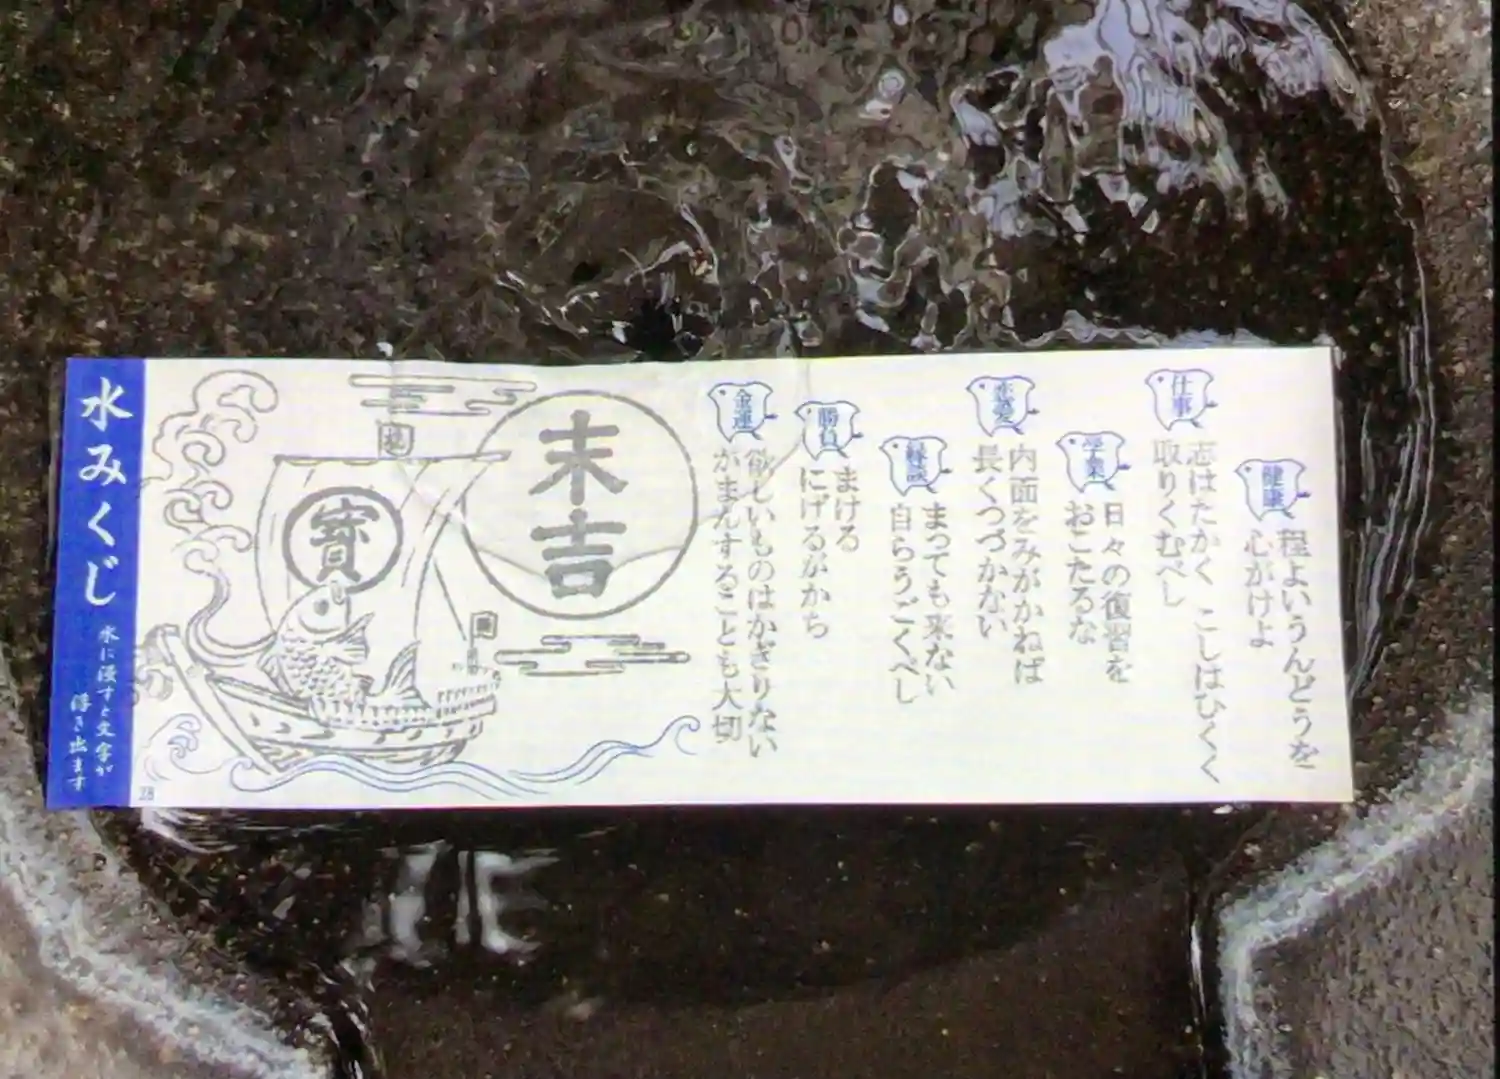 水みくじ
水に浸すと文字が
浮き出ます
28
寳
末吉
健康
程よいうんどうを
心がけよ
仕事
志はたかく こしはひくく
取りくむべし
学業
日々の復習を
おこたるな
恋愛
内面をみがかねば
長くつづかない
縁談
まっても来ない
自らうごくべし
勝負
まける
にげるがかち
金運
欲しいものはかぎりない
がまんすることも大切